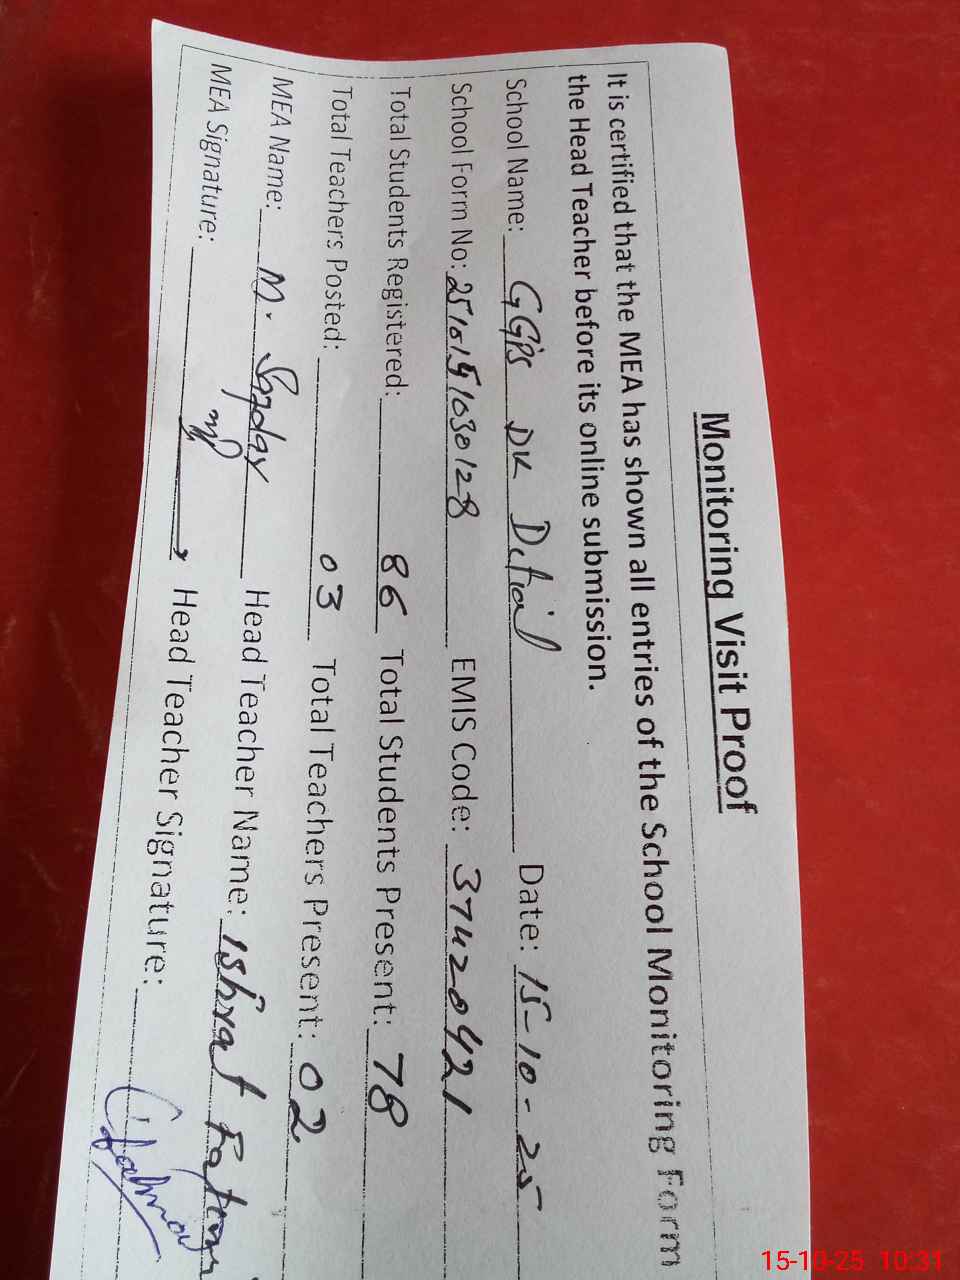 Monitoring Visit Proof
It is certified that the MEA has shown all entries of the School Monitoring Form
the Head Teacher before its online submission.
School Name: GGPS DK Date: 15-10-25
School Form No: 2510151030128 EMIS Code: 37420421
Total Students Registered: 86 Total Students Present: 78
Total Teachers Posted: 03 Total Teachers Present: 02
MEA Name: M. Head Teacher Name: Ishrat Fatima
MEA Signature: Head Teacher Signature:
15-10-25 10:31